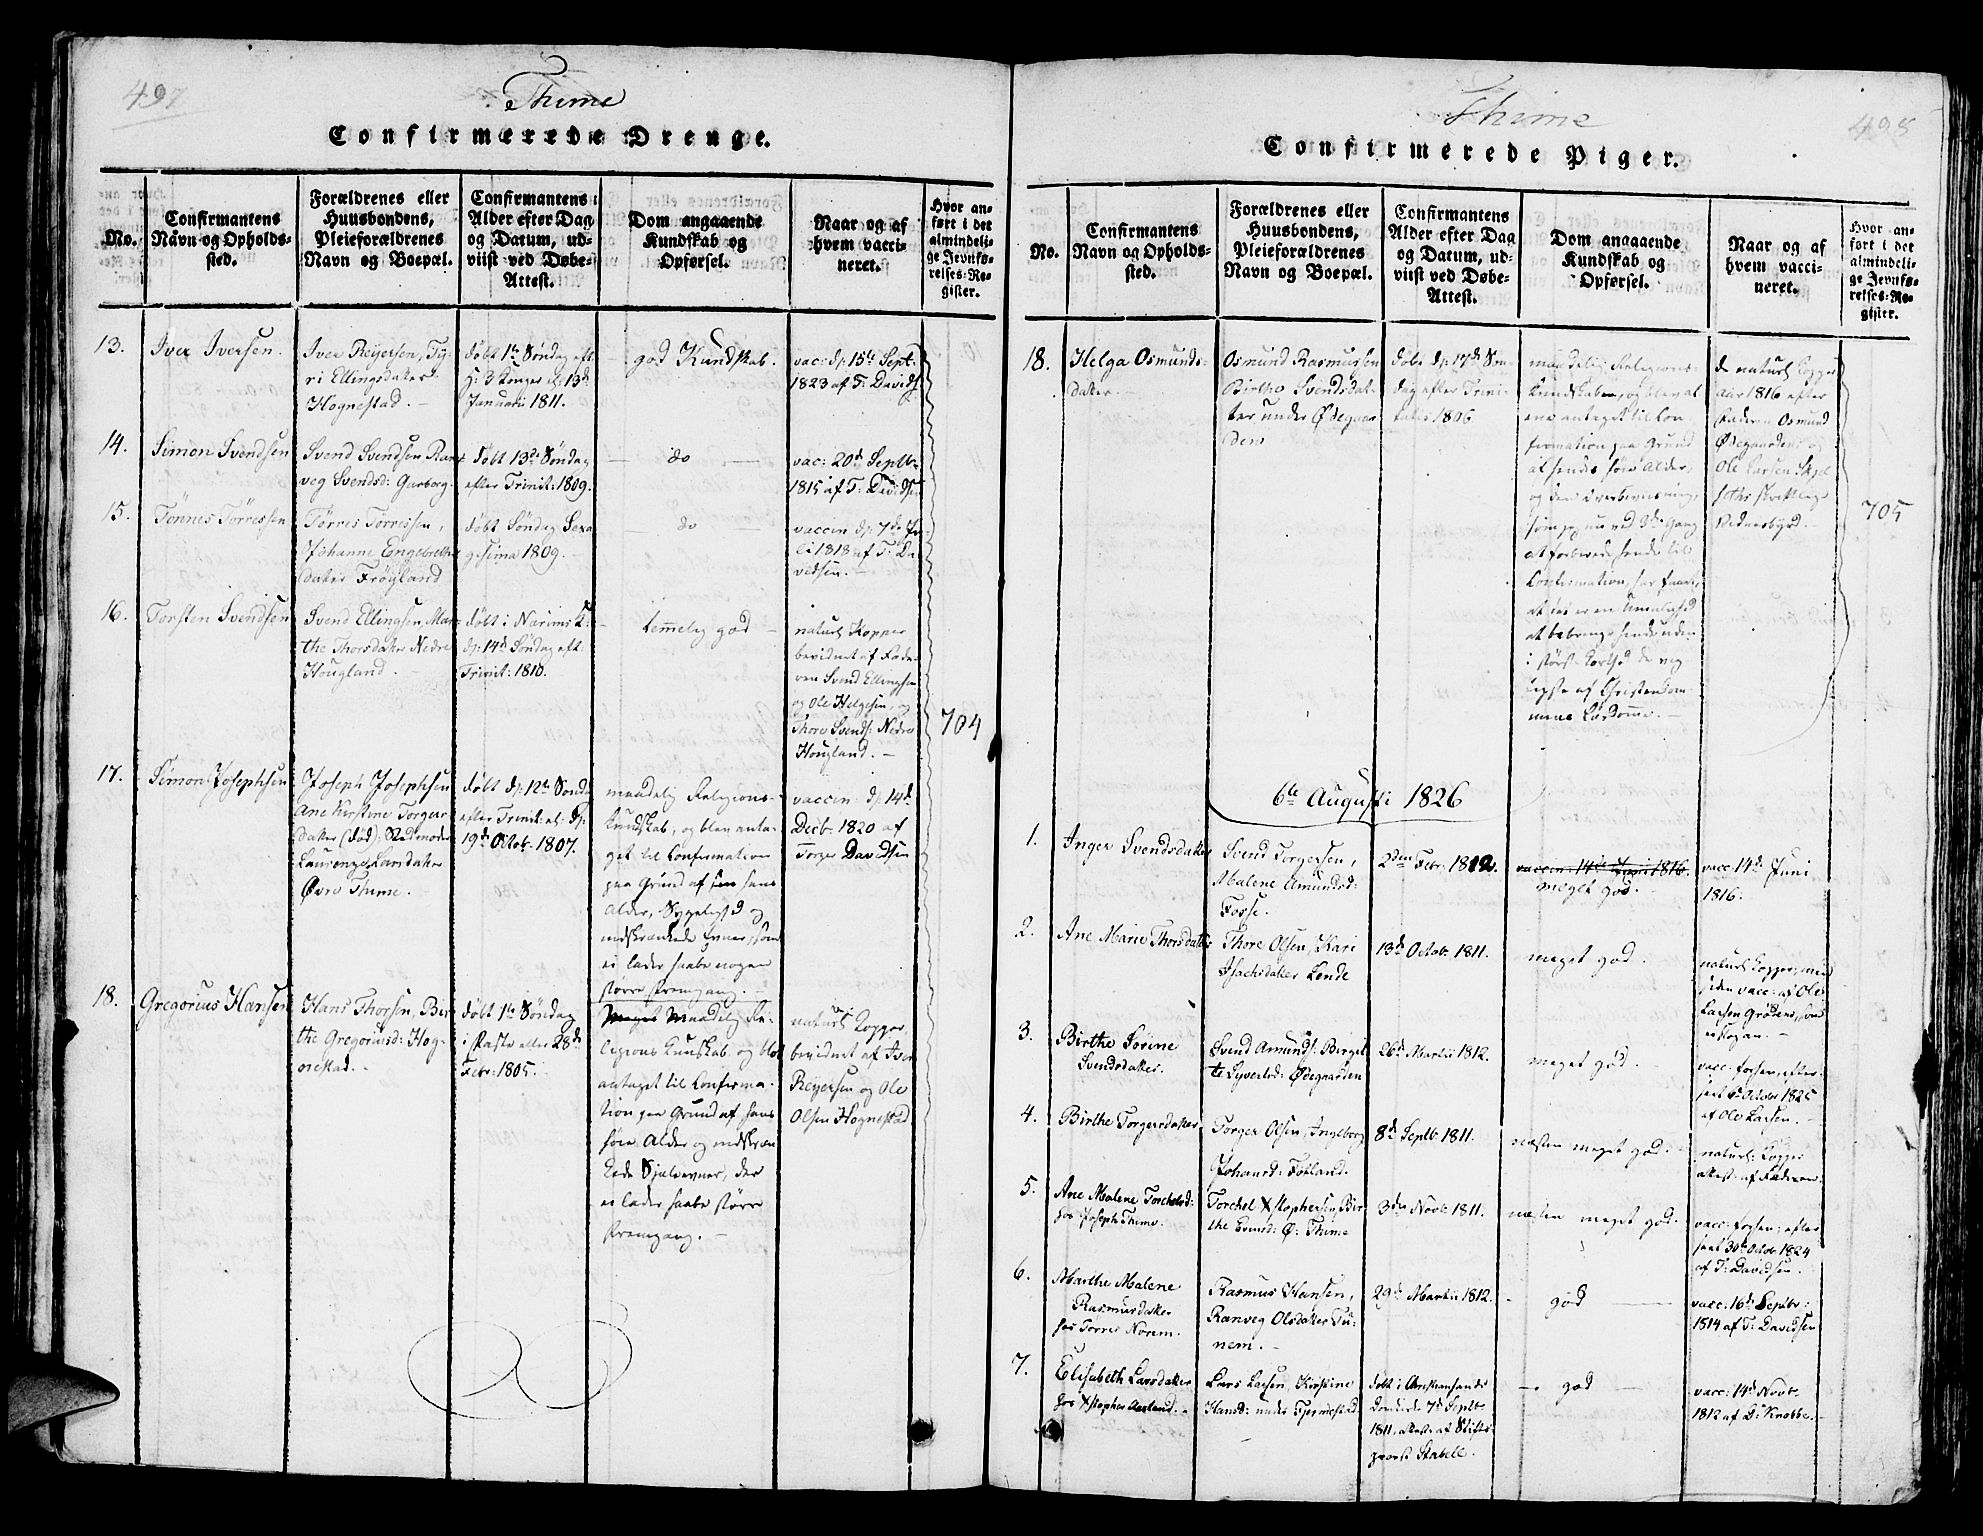 497
Thime
Confirmerede Drenge.
No.
Confirmantens
Navn og Opholds-
sted.
Forældrenes eller
Huusbondens,
Pleieforældrenes
Navn og Boepæl.
Confirmantens
Alder efter Dag
og Datum, ud-
viist ved Døbe-
Attest.
Dom angaaende
Kundskab og
Opførsel.
Naar og af
hvem vacci-
neret.
Hvor an-
ført i det
almindeli-
ge Jevnfø-
relses-Re-
gister.
13.
Iver Iversen.
Iver Reiersen, Ty-
ri Ellingsdatter
Hognestad.
døbt 1te Søndag eft
H: 3 Konger el: 13de
Januarii 1811.
god Kundskab.
vacc: d: 15de Sept:
1823 af T: Davids
14.
Simon Svendsen
Svend Svendsen Ran-
veg Svendsd: Garborg
døbt 13de Søndag
efter Trinit: 1809.
do
vac: 20d Septbr
1815 af T: Davidsen
15.
Tønnes Tørressen
Tørres Tørressen,
Johanne Engebreths
datter Frøyland
døbt Søndag Sexa
gesima 1809.
do
vaccin d: 7de Ju-
li 1818 af T: Da-
vidsen.
16.
Torsten Svendsen
Svend Ellingsen, Mar-
the Thorsdatter Nedre
Hougland.
døbt i Nærims K:
d: 14d Søndag eft.
Trinit: 1810.
temmelig god
naturl Kopper
bevidnet af Fade-
ren Svend Ellingsen
og Ole Helgesen, og
Thore Svends: Nedre
Hougland.
704
17.
Simon Josephsen
Joseph Josephsen
Ane Kirstine Torger
datter (død), Stedmoder
Laurenze Larsdatter
Øvre Thime.
døbt d: 12te Sønda
efter Trinit: el: d:
19de Octob: 1807.
maadelig Religions-
kundskab, og blev anta-
get til Confirmation
paa Grund af hans
Alder, Sygelighed og
indskrænkede Evner, som
ei lader haabe nogen
større Fremgang.
vaccin: d: 14d
Decb: 1820 af
Torger Davidsen
18.
Gregorius Hansen
Hans Thorsen, Bir
the Gregoriusd: Hog
nestad.
døbt 1te Søndag
i Faste eller 28de
Febr: 1805.
Meget Maadelig Re-
ligions Kundskab og blev
antaget til Confirma-
tion paa Grund af hans
høie Alder og indskræn
kede Sjælevner, der
ei lader haabe større
Fremgang.
naturl Kopper
bevidnet af Iver
Reyersen og Ole
Olsen Hognestad
498
Thime
Confirmerede Piger.
No.
Confirmantens
Navn og Opholds-
sted.
Forældrenes eller
Huusbondens,
Pleieforældrenes
Navn og Boepæl.
Confirmantens
Alder efter Dag
og Datum, ud-
viist ved Døbe-
Attest.
Dom angaaende
Kundskab og
Opførsel.
Naar og af
hvem vacci-
neret.
Hvor an-
ført i det
almindeli-
ge Jevnfø-
relses-Re-
gister.
18.
Helga Osmunds-
datter.
Osmund Rasmussen
Birthe Svendsdat-
ter under Ødegaar
den
døbt d: 17de Søn-
dag efter Trini-
tatis 1806
maadelig Religions-
kundskaber, og blev al
ene antaget til Con-
firmation paa Grund
af hendes høie Alder,
og den Overbeviisning,
som jeg nu ved 3die Gang
at forberede hende til
Confirmation, har faaet,
at det er en Umulighed
at bebringe hende uden
i største Korthed de vig
tigste af Christendom
mens Lærdomme.
de naturl Kopper
aar 1816 efter
Faderen Osmund
Ødegaardens og
Ole Larsen
skriftlige
Vidnesbyrd.
705
6te Augusti 1826
1.
Inger Svendsdatter
Svend Torgersen,
Malene Amundsd:
Fosse.
2den Febr: 1812.
vaccin: 14de Juni 1816.
meget god.
vacc: 14de Juni
1816.
2.
Ane Marie Thorsdatter
Thore Olsen, Kari
Isachsdatter Lende
13d Octob: 1811.
meget god.
naturl Kopper, men
siden vacc: af Ole
Larsen
3.
Birthe Sørine
Svendsdatter.
Svend Amunds: Birget
te Syvertsd: Ødegaarden
26d Martii 1812.
meget god.
vacc: forgen, efter
seet 4de October 1825
af Ole Larsen.
4.
Birthe Torgersdatter
Torger Olsen, Ingeborg
Johansd: Fotland.
8de Septb: 1811.
næsten meget god.
naturl: Kopper
attest: af Faderen.
5.
Ane Malene Torchelsd:
hos Joseph Thime.
Torchel Xstophersen, Bir
the Evensd: Ø: Thime
3den Novb: 1811.
næsten meget god.
vacc: forgen; efter
seet 30te Octob: 1824
af T: Davidsen.
6.
Marthe Malene
Rasmusdatter
hos Tørres Norem.
Rasmus Hansen,
Ranveg Olsdatter Tu-
nem.
29d Martii 1812.
god
vacc: 16de Septbr:
1814 af T: Davidsen
7.
Elisabeth Larsdatter
hos Xstopher Aasland.
Lars Larsen, Kirstine
Hansd: under Tjermestad
døbt i Christiansands
Domkirke 7d Septb:
1811, attest: af Stifts-
provst Stabell.
god
vacc: 14d Novb:
1812 af D: Knobbe.